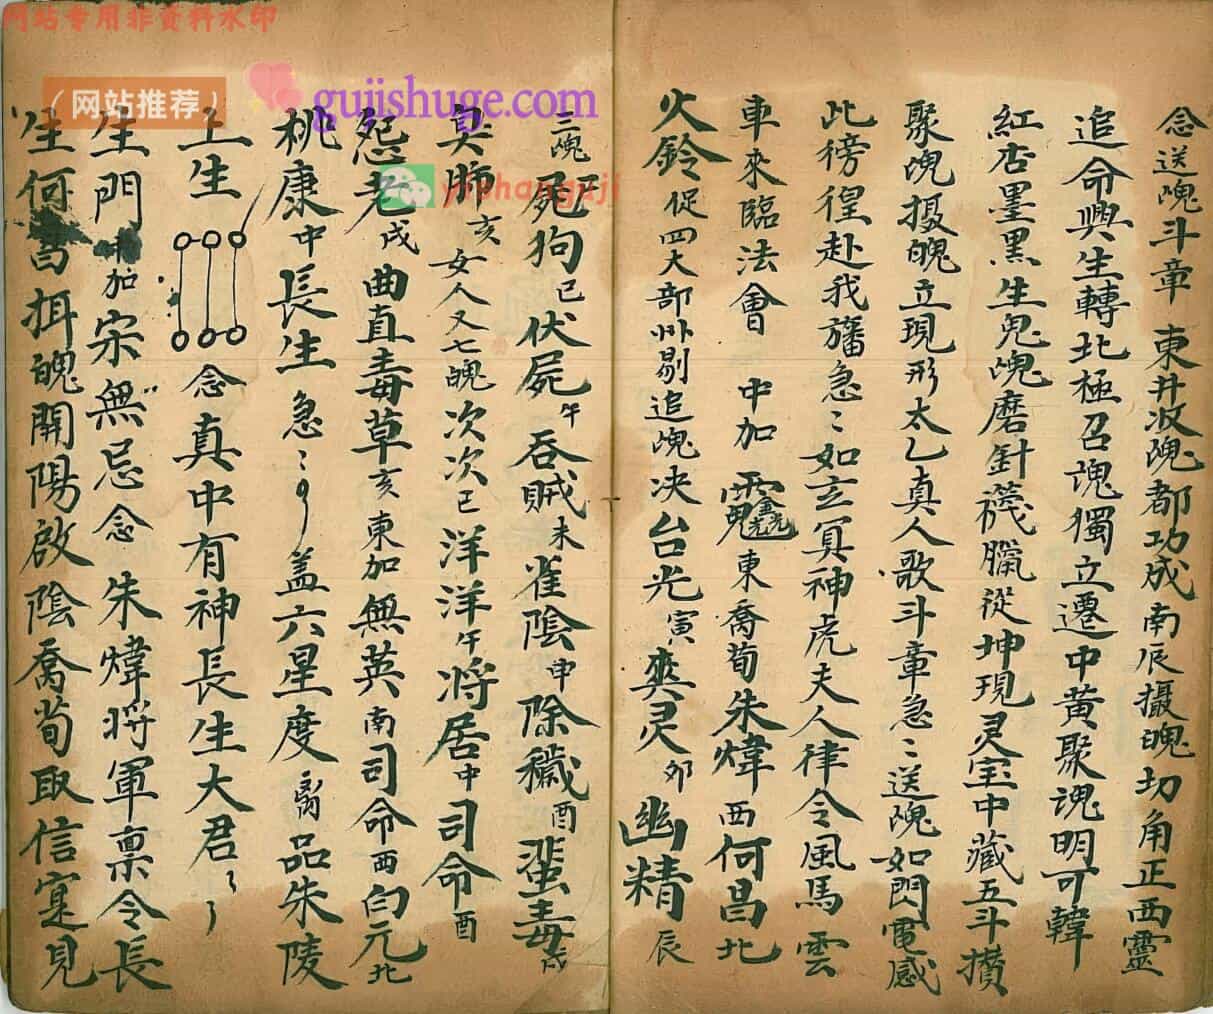 网站专用非资料水印
（网站推荐）
gujishuge.com
念送魂斗章 東井收魂都功成南辰摄魄切角正西靈
追命與生轉北極召魂獨立遷中黄聚魂明可韓
紅店墨黑生児魂磨針襪臘從坤現灵宝中藏五斗攅
聚魂摄魄立現形太乙真人歌斗章急〻送魂如閃電感
此徬徨赴我旛急〻如玄冥神虎夫人律令風馬雲
車來臨法會 中加 金光 東喬荀朱煒西何昌北
火鈴促四大部 剔追魂决台光寅爽灵卯幽精辰
三魂尸狗巳伏屍午吞賊未雀陰申除穢酉蜚毒戌
臭肺亥女人又七魄次次巳洋洋午将居中司命酉
怨老戌曲直毒草亥東加無英南司命西白元北
桃康中長生急〻 盖六星度 品朱陵
上生 念真中有神長生大君
生門 加宗無忌念 朱煒将軍禀令長
生何昌拑魄開陽啟陰喬荀取信寔見